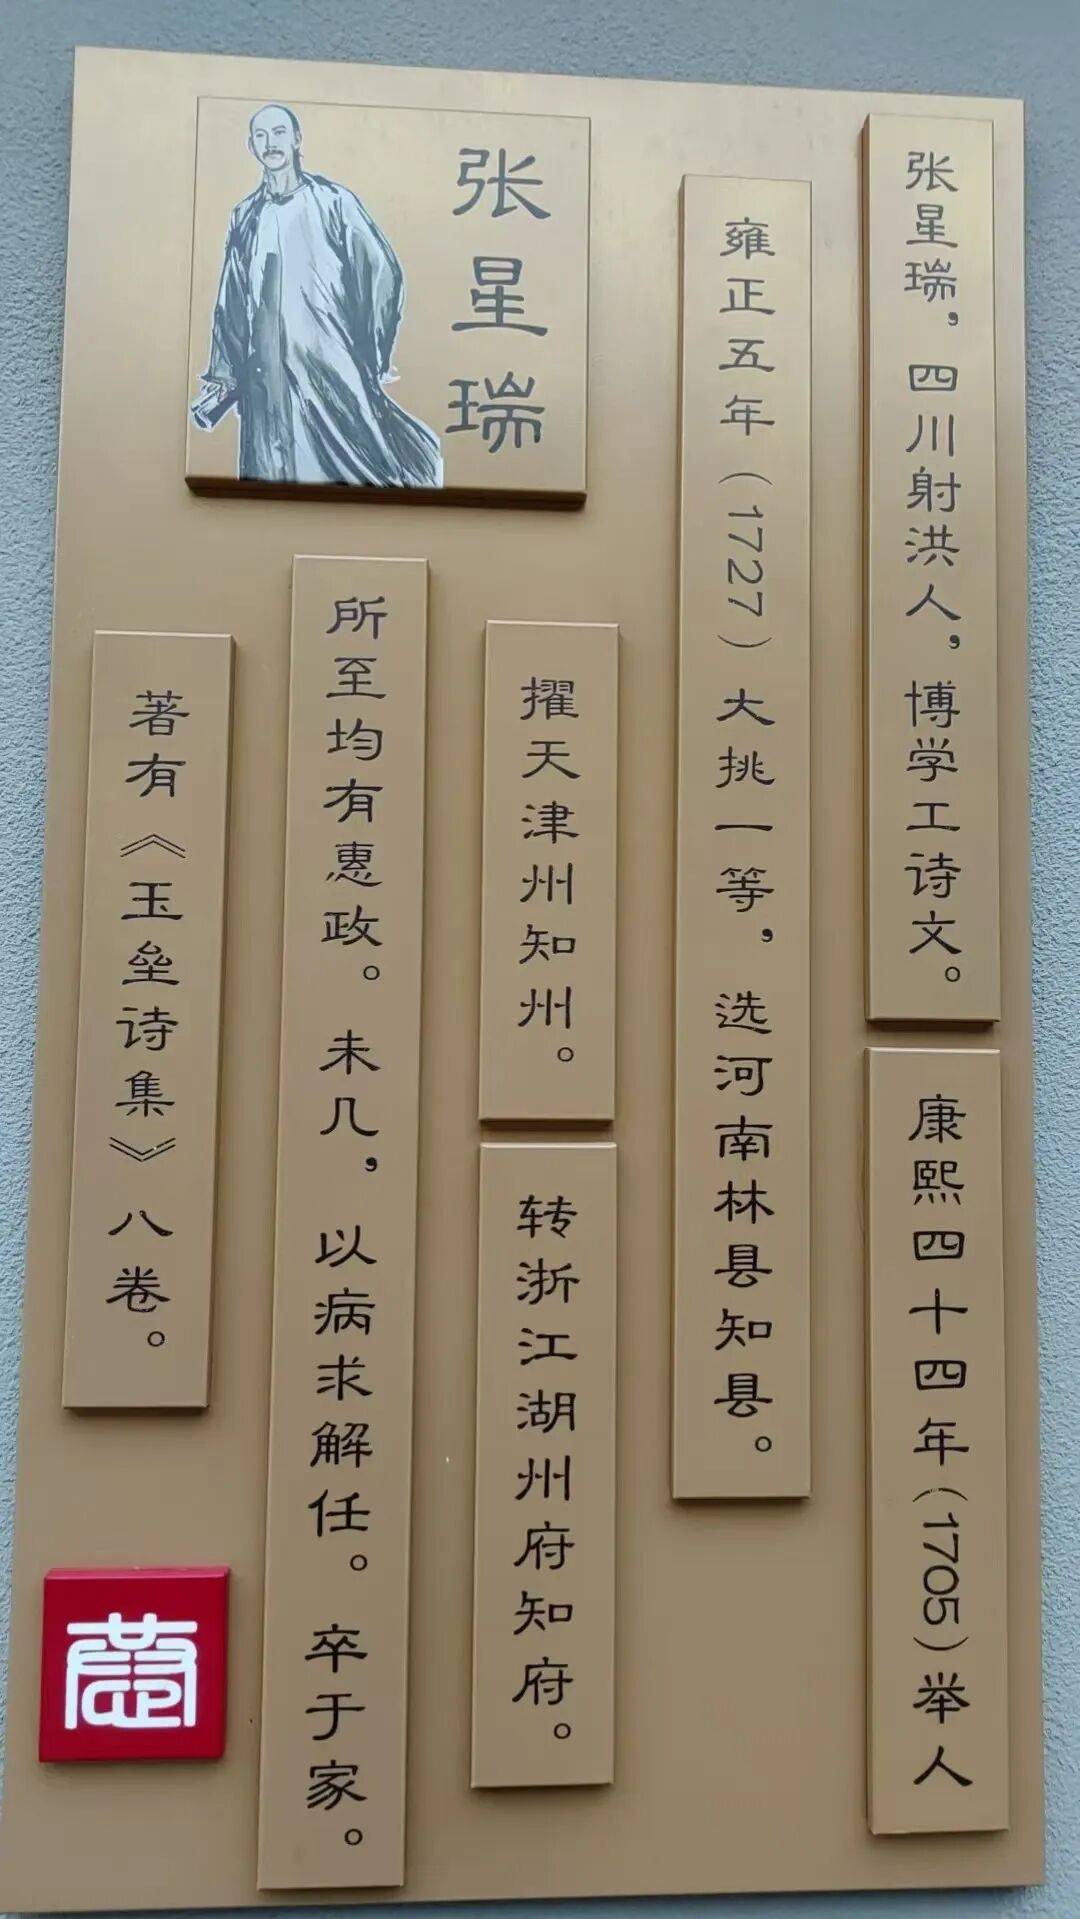 张星瑞
张星瑞，四川射洪人，博学工诗文。
康熙四十四年（1705）举人
雍正五年（1727）大挑一等，选河南林县知县。
擢天津州知州。
转浙江湖州府知府。
所至均有惠政。未几，以病求解任。卒于家。
著有《玉垒诗集》八卷。